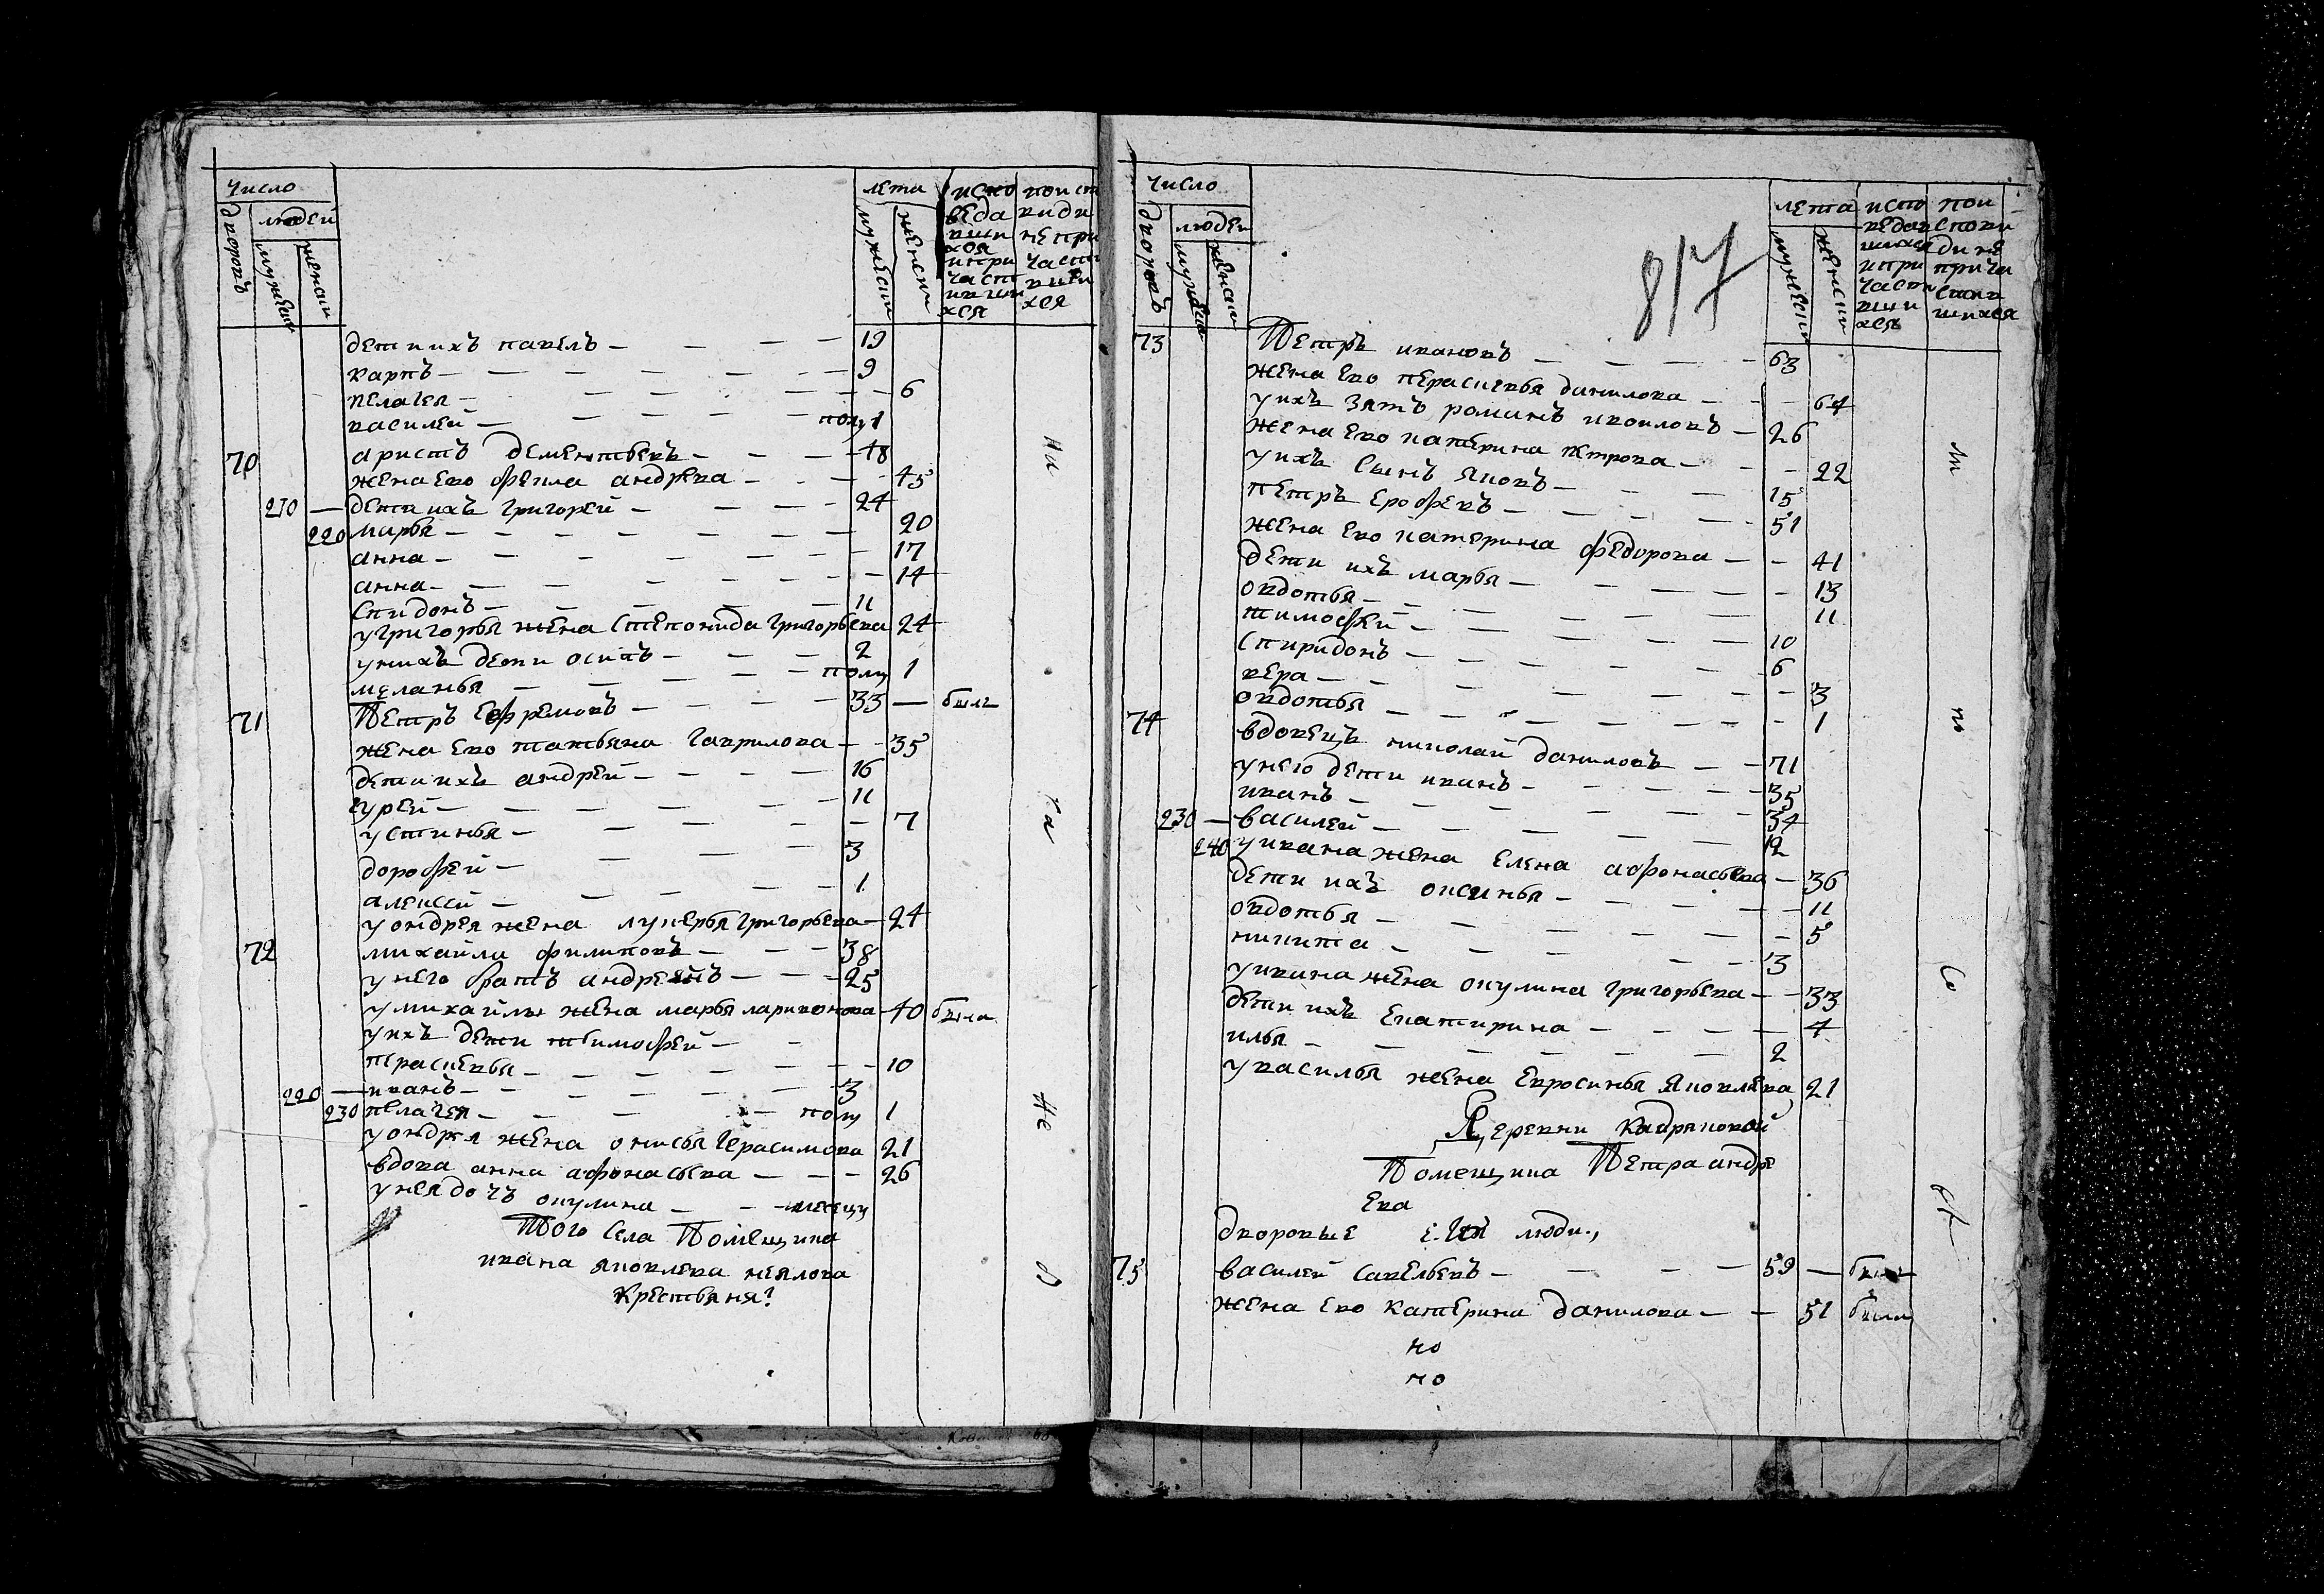 Число
людей
дворовъ
мужеска
женски
лета
мужески
женски
испо
веда
вши
хся
и при
част
ивши
хся
дети ихъ павелъ — 19
карпъ — 9
пелагея — 6
василей — полу 1
70 аристъ дементьевъ — 48
жена ево фекла андреева — 45
210 — дети ихъ григорей — 24
220 марфа — 20
анна — 17
анна — 14
спидонъ — 11
у григорья жена степонида григорьева 24
у нихъ дети осипъ — 2
меланья — полу 1
71 Петръ Ефремовъ — 33 — былъ
жена ево татьяна гаврилова — 35
дети ихъ андрей — 16
гурей — 11
устинья — 7
дорофей — 3
алексей — 1
у ондрея жена лукерья григорьева — 24
72 михайла филиповъ — 38
у него братъ андрей — 25
у михайлы жена марья ларивонова — 40 была
у ихъ дети тимофей —
прасковья — 10
220 — иванъ — 3
230 пелагея — полу 1
у ондрея жена онисья герасимова 21
вдова анна афонасьева — 26
у нея дочь окулина — месецу
Того села Помещика
ивана яковлева неялова
Крестьяня
На
га
не
в
Число
людей
дворовъ
мужеска
женски
817
лета
мужески
женски
73 Петръ ивановъ — 63
жена ево пераскевья данилова — 64
у ихъ зять романъ ивоиловъ — 26
жена ево катерина петрова — 22
у ихъ сынъ яковъ — 15
петръ ерофеевъ — 51
жена ево катерина федорова — 41
дети ихъ марфа — 13
овдотья — 11
тимофей — 10
спиридонъ — 6
вера — 3
овдотья — 1
74 вдовецъ николай даниловъ — 71
у него дети иванъ — 35
иванъ — 34
230 — василей — 12
240 у ивана жена елена афонасьева — 36
дети ихъ оксинья — 11
овдотья — 5
никита — 3
у ивана жена окулина григорьева — 33
дети ихъ екатирина — 4
илья — 2
у василья жена евросинья яковлева 21
Деревни Кадряковой
Помещика Петра андре
ева
дворовые ево люди
75 василей савельевъ — 59 — былъ
жена ево катерина данилова — 51 была
но
но
ли
т
со